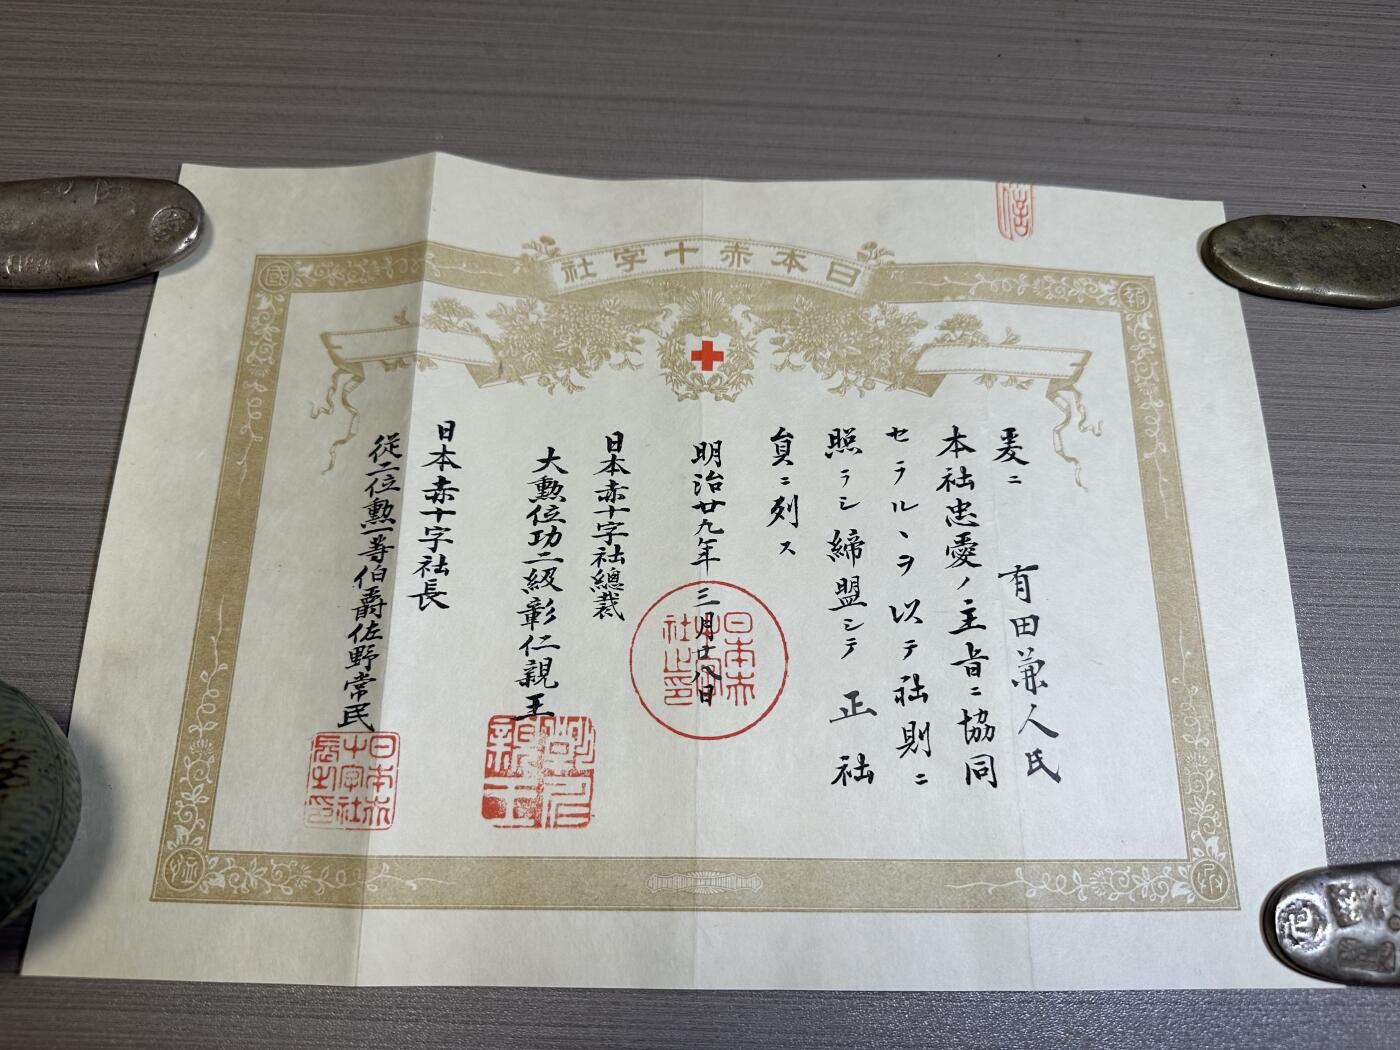 日本赤十字社
報
國
恤
信
有田兼人氏
爰ニ
本社忠愛ノ主旨ニ協同
セラルヽヲ以テ社則ニ
照ラシ締盟シテ正社
員ニ列ス
明治廿九年三月廿八日
日本赤十字社之印
日本赤十字社總裁
大勲位功二級彰仁親王
彰仁親王
日本赤十字社長
従二位勲一等伯爵佐野常民
日本赤十字社長之印